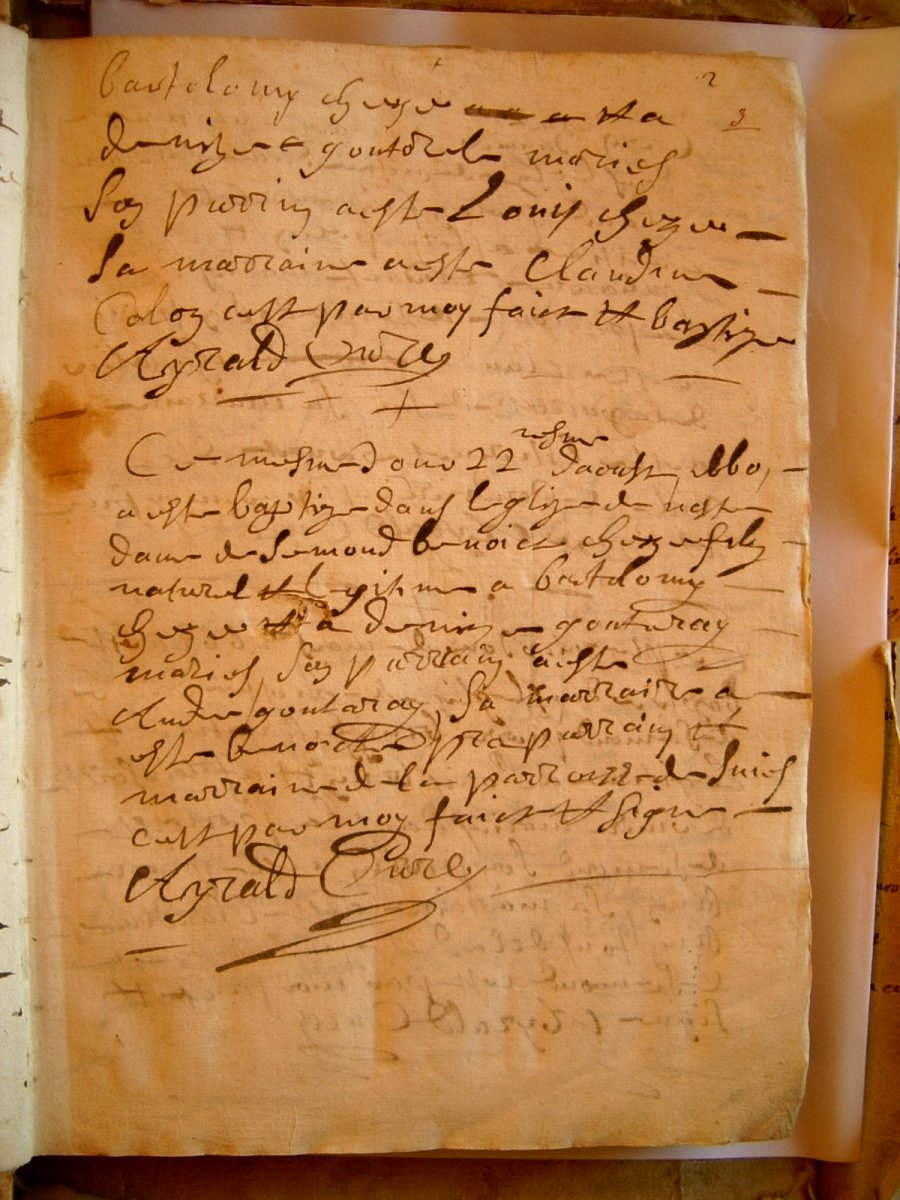 2
3
bartolomy cheze a et a
denize goutorele mariés
son parrin a esté Louis cheze
sa marraine a esté Claudine
Colon c'est par moy faict et baptize
Ayrald Curé
Ce mesme Jour 22 resme daoust
a esté baptize dans leglize de nostre
dame de Semond benoict cheze fily
naturel et legitime a bartolomy
cheze et a denize goutaray
mariés, son parrain a esté
Andé goutaray, sa marraine a
esté benoicte pra parrain et
marraine de la parroisse de Suics
c'est par moy faict et signe
Ayrald Curé